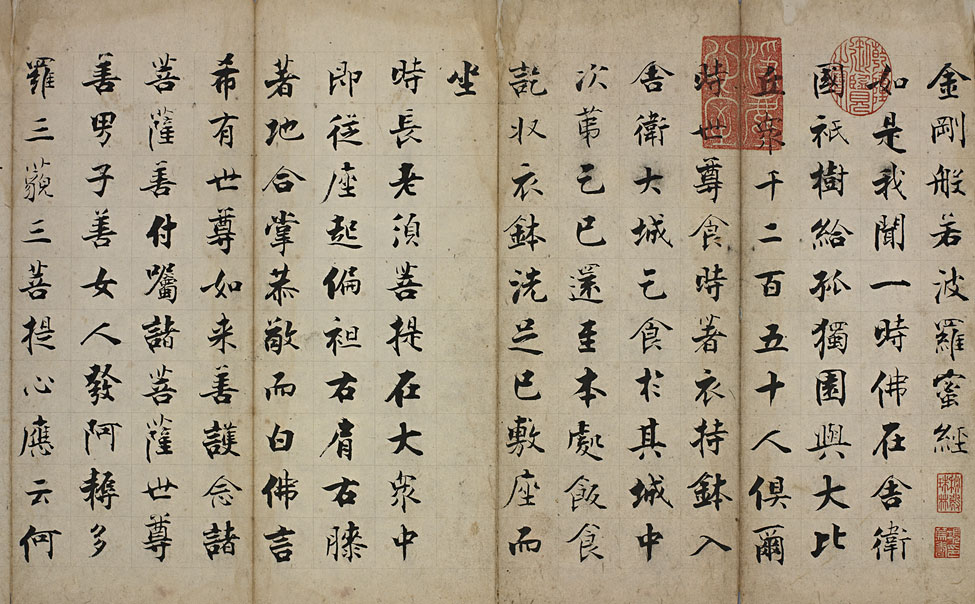 金剛般若波羅蜜経
如是我聞一時佛在舍衛
國祇樹給孤獨園與大比
丘衆千二百五十人俱爾
時世尊食時著衣持鉢入
舍衛大城乞食於其城中
次苐乞已還至本處飯食
訖収衣鉢洗足已敷座而
坐
時長老須菩提在大衆中
即従座起偏袒右肩右膝
著地合掌恭敬而白佛言
希有世尊如来善護念諸
菩薩善付囑諸菩薩世尊
善男子善女人發阿耨多
羅三藐三菩提心應云何